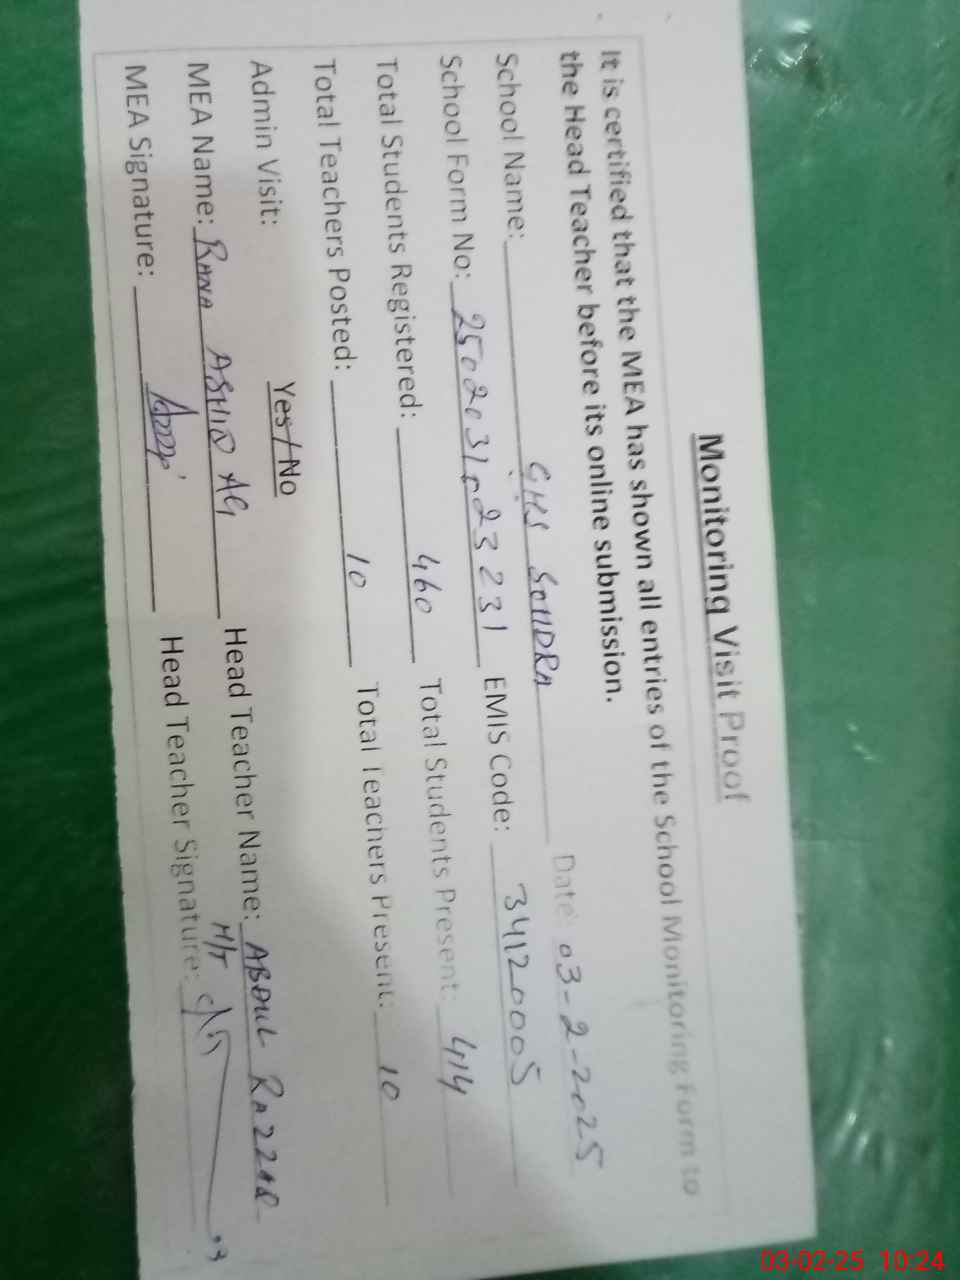 Monitoring Visit Proof
It is certified that the MEA has shown all entries of the School Monitoring Form to
the Head Teacher before its online submission.
School Name: GHS SOHDRA Date: 03-2-2025
School Form No: 25020310 23231 EMIS Code: 34120005
Total Students Registered: 460 Total Students Present: 414
Total Teachers Posted: 10 Total Teachers Present: 10
Admin Visit: Yes / No
MEA Name: RANA ASHIQ ALI Head Teacher Name: ABDUL RAZZAQ
MEA Signature: Head Teacher Signature:
H/T
03-02-25 10:24